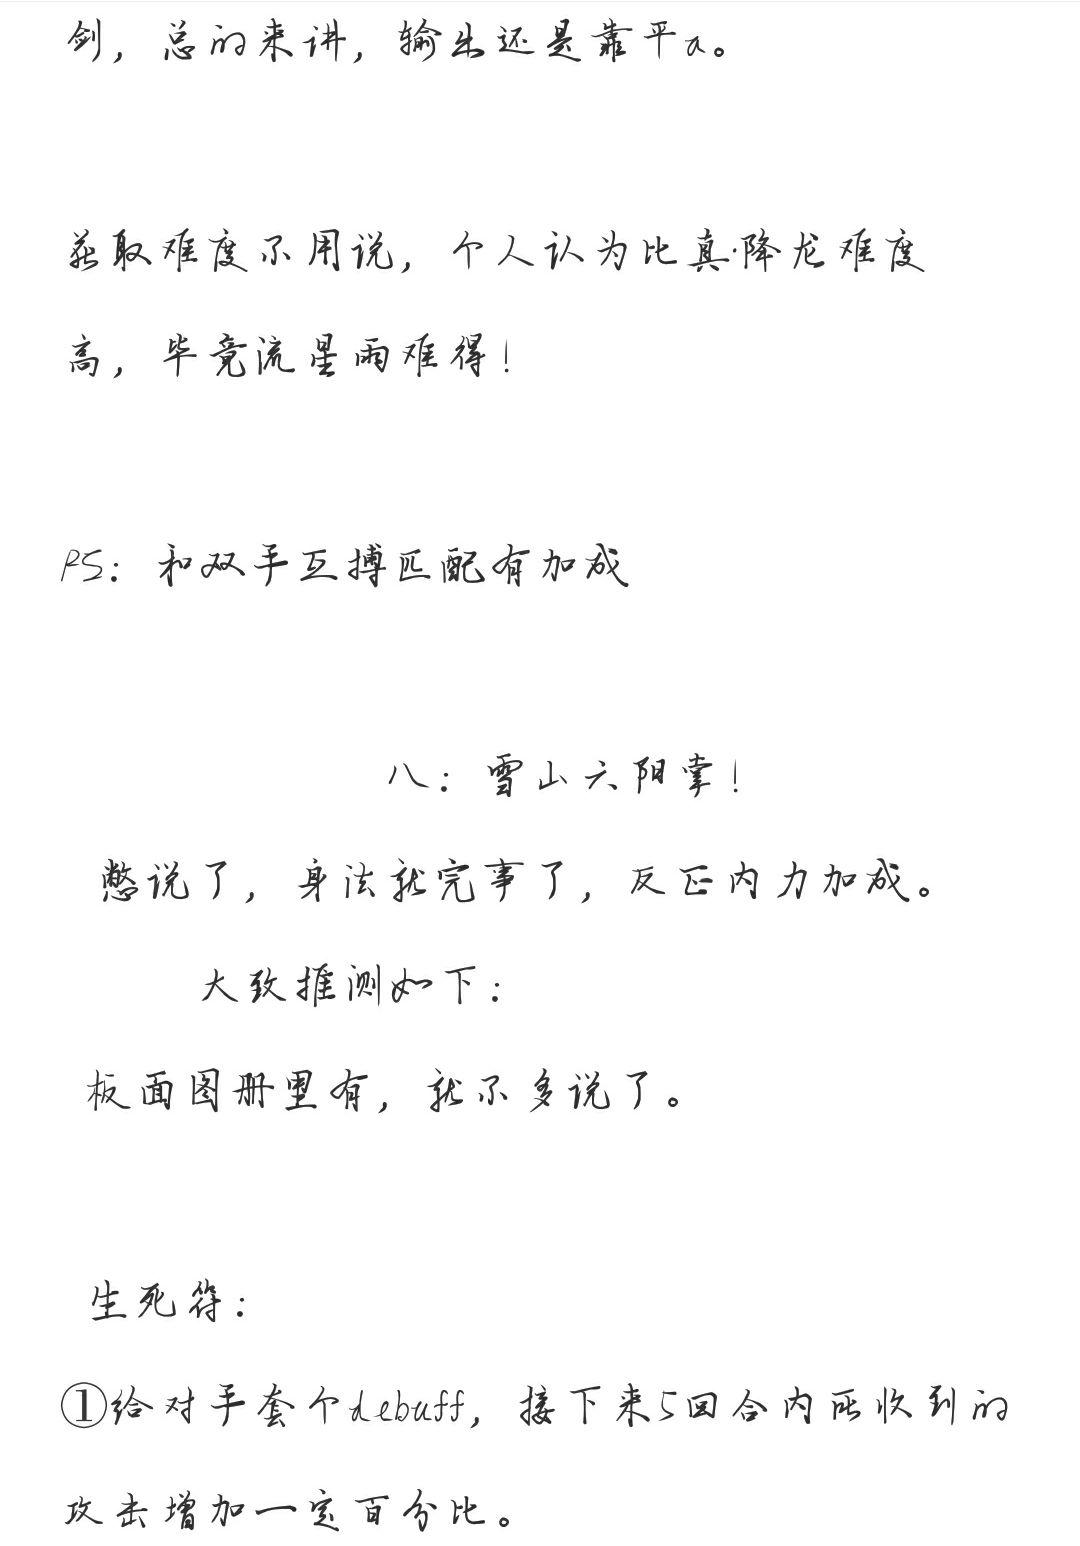 剑，总的来讲，输出还是靠平a。
获取难度不用说，个人认为比真·降龙难度
高，毕竟流星雨难得！
PS：和双手互搏匹配有加成
八：雪山六阳掌！
憋说了，身法就完事了，反正内力加成。
大致推测如下：
板面图册里有，就不多说了。
生死符：
①给对手套个debuff，接下来5回合内所收到的
攻击增加一定百分比。